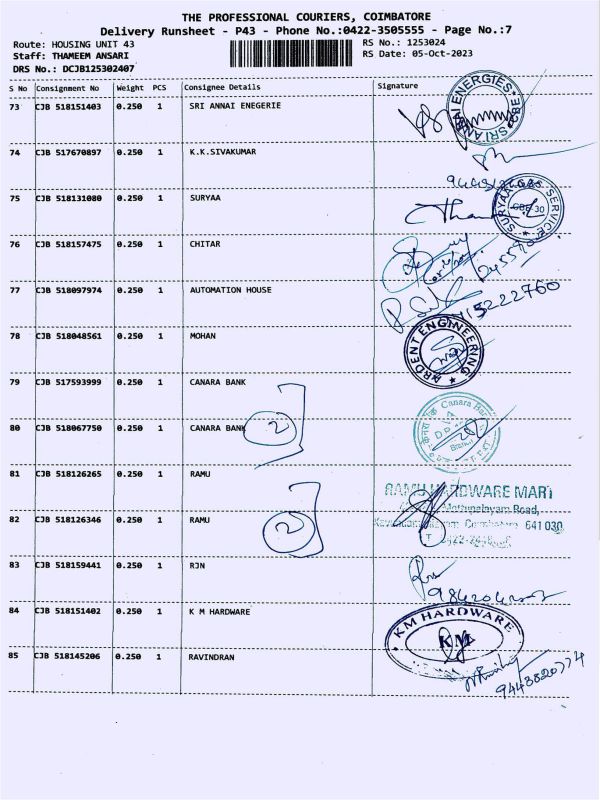 THE PROFESSIONAL COURIERS, COIMBATORE
Delivery Runsheet - P43 - Phone No.:0422-3505555 - Page No.:7
Route: HOUSING UNIT 43 RS No.: 1253024
Staff: THAMEEM ANSARI RS Date: 05-Oct-2023
DRS No.: DCJB125302407
S No Consignment No Weight PCS Consignee Details Signature
73 CJB 518151403 0.250 1 SRI ANNAI ENEGERIE SRI ANNAI ENERGIES
74 CJB 517670897 0.250 1 K.K.SIVAKUMAR
75 CJB 518131080 0.250 1 SURYAA SURYAA SERVICE
76 CJB 518157475 0.250 1 CHITAR
77 CJB 518097974 0.250 1 AUTOMATION HOUSE
78 CJB 518048561 0.250 1 MOHAN ARDENT ENGINEERING
79 CJB 517593999 0.250 1 CANARA BANK
80 CJB 518067750 0.250 1 CANARA BANK 2 Canara Bank
81 CJB 518126265 0.250 1 RAMU RAMU HARDWARE MART
82 CJB 518126346 0.250 1 RAMU 2 Mettupalayam Road,
Coimbatore 641 030
83 CJB 518159441 0.250 1 RJN
84 CJB 518151402 0.250 1 K M HARDWARE KM HARDWARE
KM
85 CJB 518145206 0.250 1 RAVINDRAN
9443820774